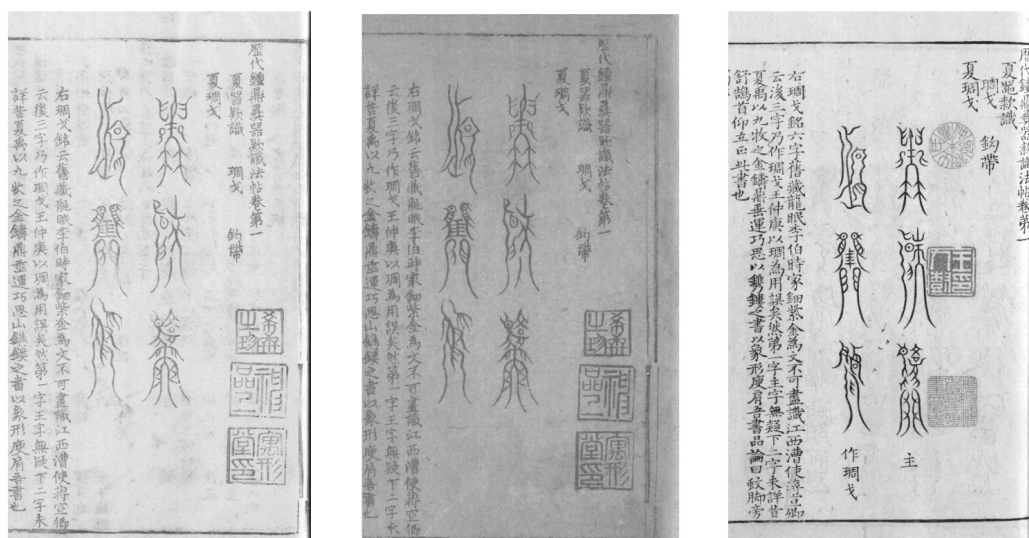 歷代鐘鼎彝器款識法帖卷第一
夏器款識 琱戈 鉤帶
夏琱戈
右琱戈銘云舊藏龍眠李伯時家鈿紫金為文不可盡識江西漕使蔣宣卿
云後三字乃作琱戈王仲庚以琱為用誤矣然第一字王字無疑下二字未
詳昔夏禹以九牧之金鑄鼎垂運巧思山鎸鏤之書以象形庾肩吾書也
歷代鐘鼎彝器款識法帖卷第一
夏器款識 琱戈 鉤帶
夏琱戈
右琱戈銘云舊藏龍眠李伯時家鈿紫金為文不可盡識江西漕使蔣宣卿
云後三字乃作琱戈王仲庚以琱為用誤矣然第一字王字無疑下二字未
詳昔夏禹以九牧之金鑄鼎垂運巧思山鎸鏤之書以象形庾肩吾書也
歷代鐘鼎彝器款識法帖卷第一
夏器款識
琱戈 鉤帶
夏琱戈
主
作琱戈
右琱戈銘六字舊藏龍眠李伯時家鈿紫金為文不可盡識江西漕使卿
云後三字乃作琱戈王仲庚以琱為用誤矣然第一字主字無疑下二字未詳昔
夏禹以九牧之金鑄鼎垂運巧思以鎸鏤之書以象形庾肩吾書品論曰蛟脚旁
舒鵠首仰立正此書也